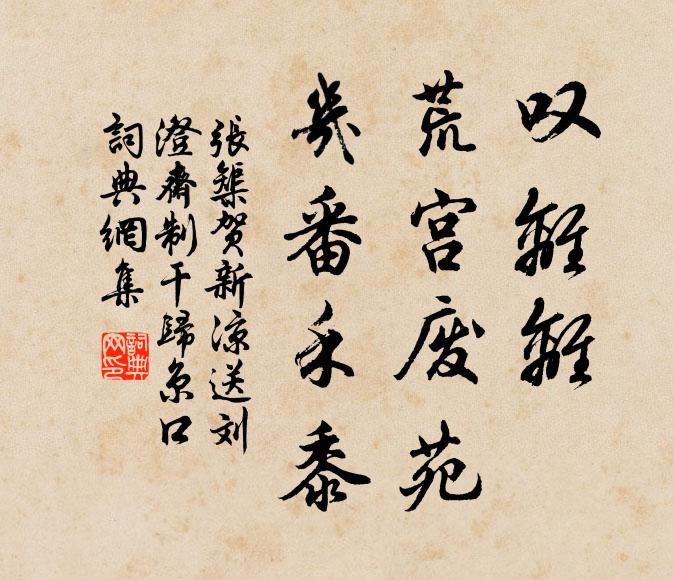 叹離離
荒宫废苑
幾番禾黍
張榘贺新凉送刘
澄齋制干歸京口
詞典網集
詞典網印